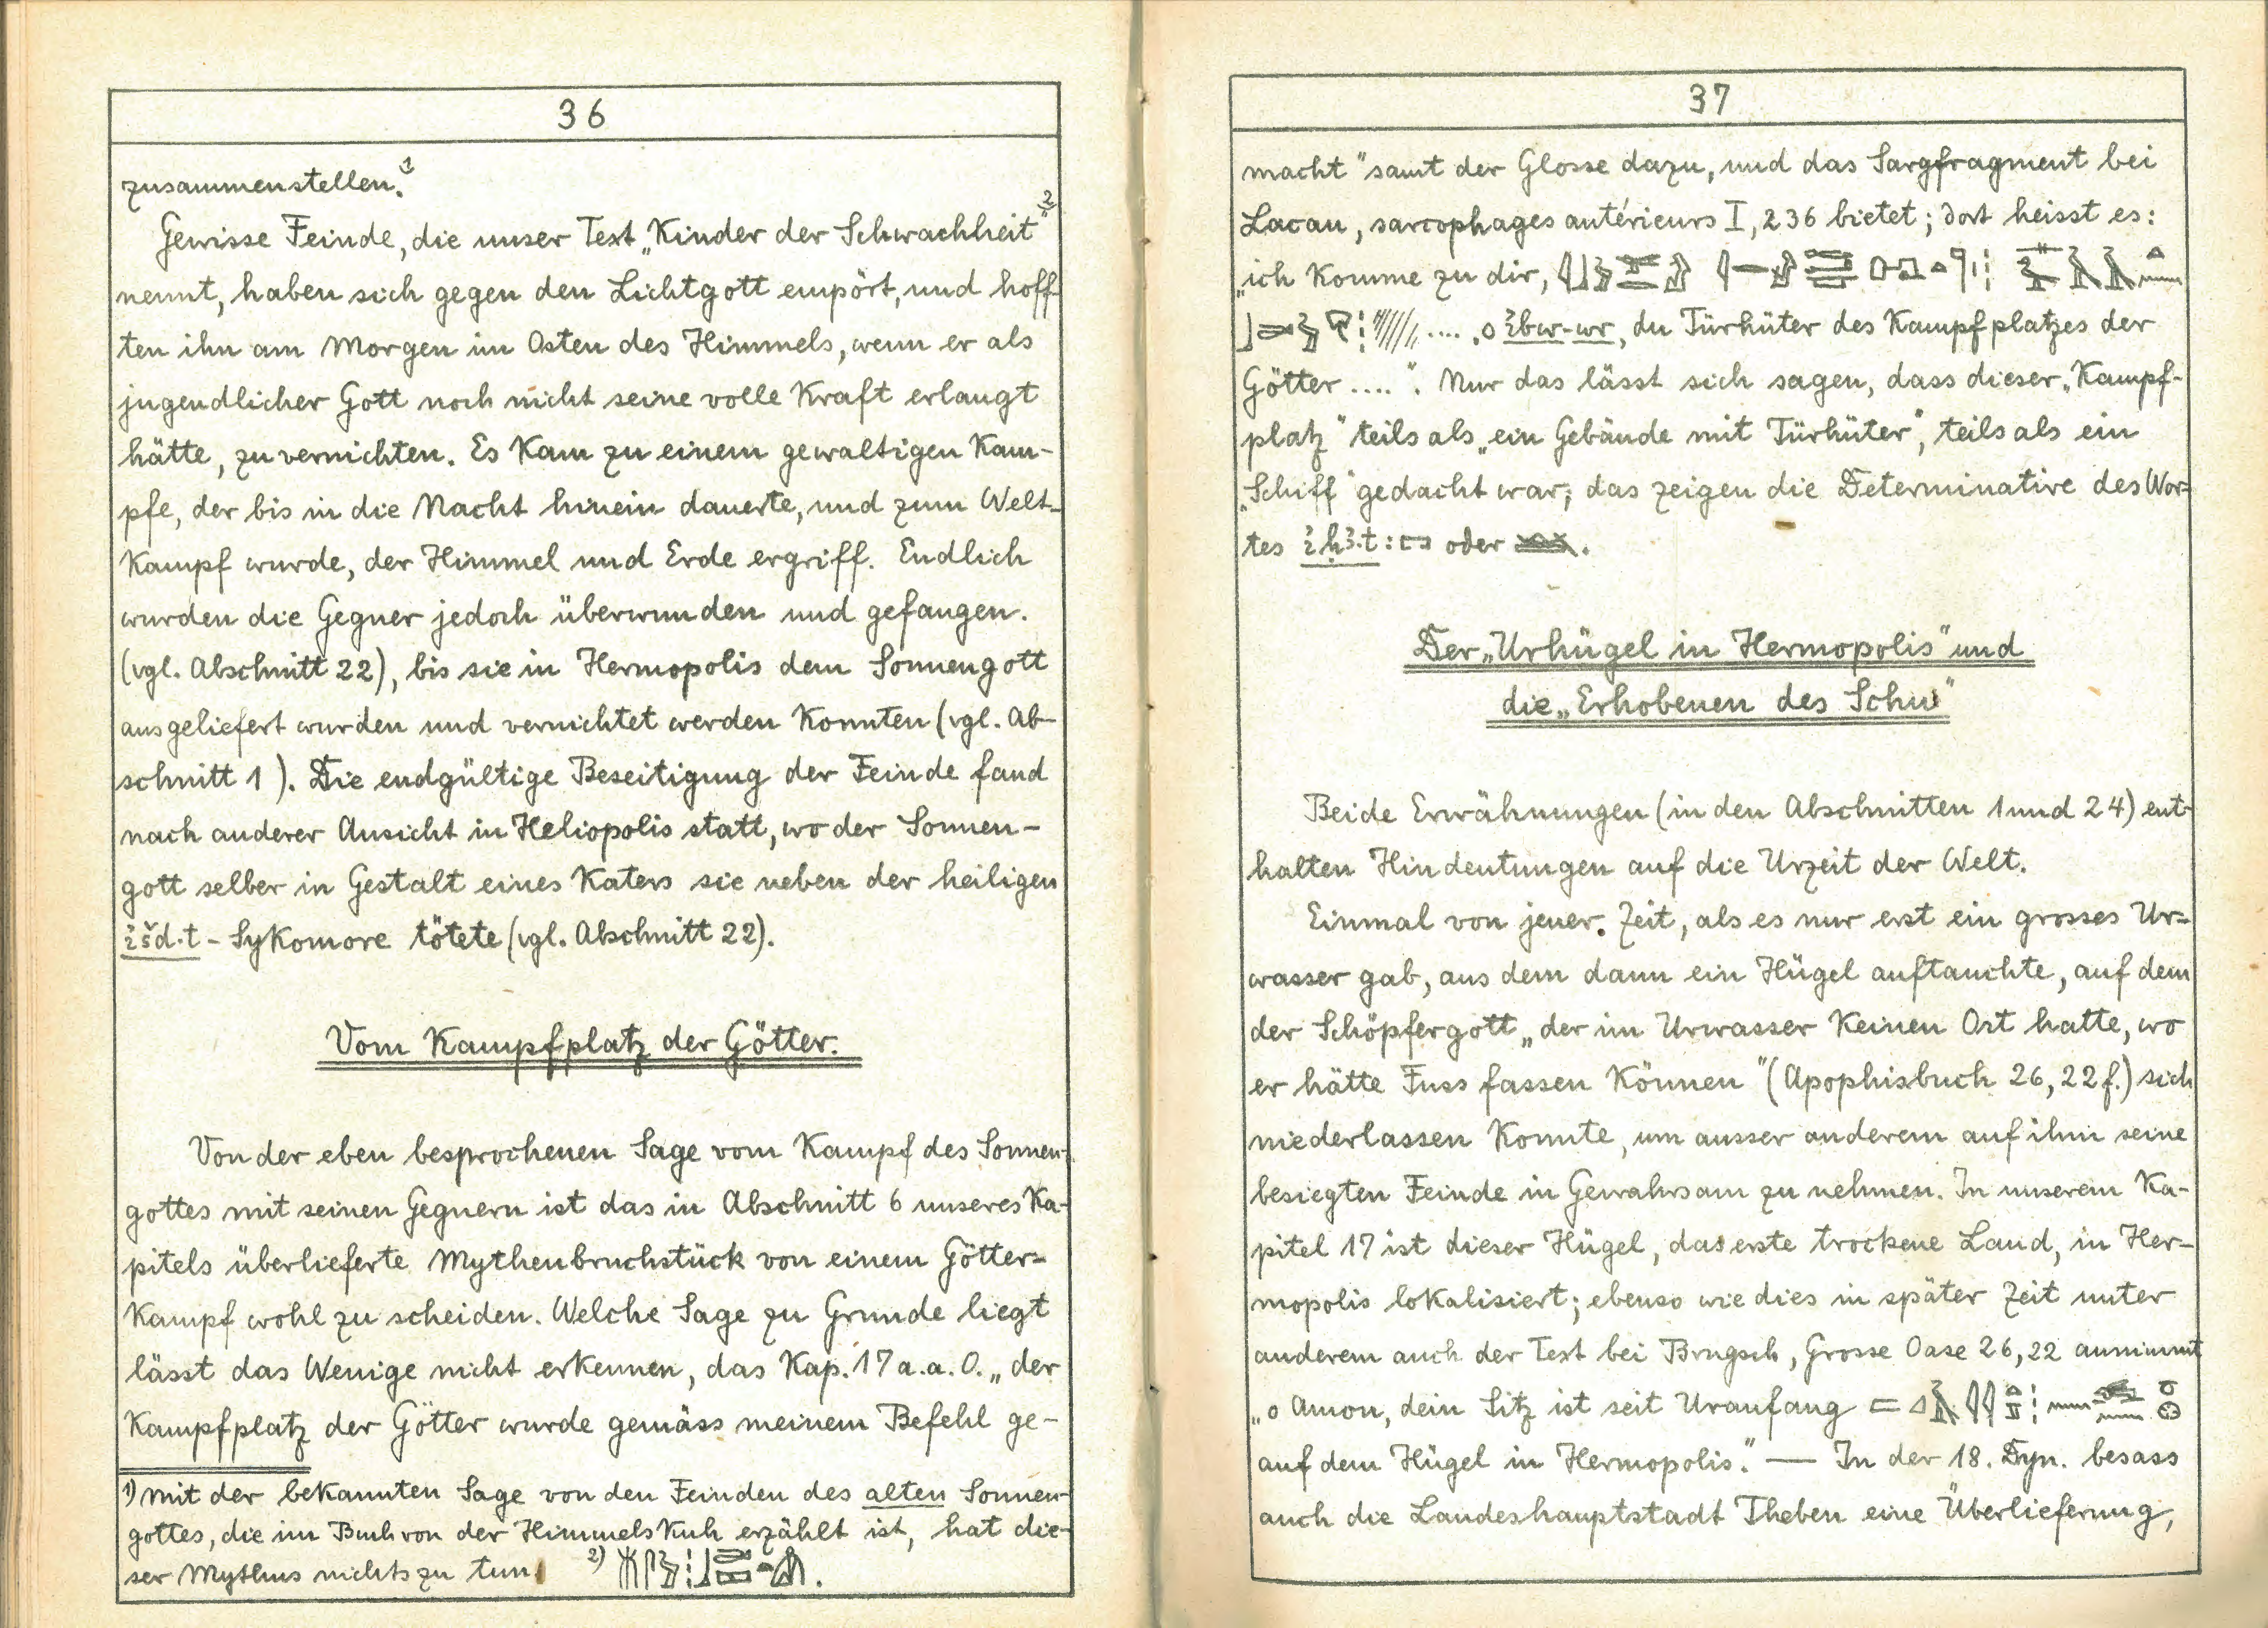 36
zusammenstellen.¹
Gewisse Feinde, die unser Text „Kinder der Schwachheit“²
nennt, haben sich gegen den Lichtgott empört, und hoff-
ten ihn am Morgen im Osten des Himmels, wenn er als
jugendlicher Gott noch nicht seine volle Kraft erlangt
hätte, zu vernichten. Es kam zu einem gewaltigen Kam-
pfe, der bis in die Nacht hinein dauerte, und zum Welt-
kampf wurde, der Himmel und Erde ergriff. Endlich
wurden die Gegner jedoch überwunden und gefangen.
(vgl. Abschnitt 22), bis sie in Hermopolis dem Sonnengott
ausgeliefert wurden und vernichtet werden konnten (vgl. Ab-
schnitt 1). Die endgültige Beseitigung der Feinde fand
nach anderer Ansicht in Heliopolis statt, wo der Sonnen-
gott selber in Gestalt eines Katers sie neben der heiligen
ı͗šd·t - Sykomore tötete (vgl. Abschnitt 22).
Vom Kampfplatz der Götter.
Von der eben besprochenen Sage vom Kampf des Sonnen-
gottes mit seinen Gegnern ist das in Abschnitt 6 unseres Ka-
pitels überlieferte Mythenbruchstück von einem Götter-
kampf wohl zu scheiden. Welche Sage zu Grunde liegt
lässt das Wenige nicht erkennen, das Kap. 17 a. a. O. „der
Kampfplatz der Götter wurde gemäss meinem Befehl ge-
1) Mit der bekannten Sage von den Feinden des alten Sonnen-
gottes, die im Buch von der Himmelskuh erzählt ist, hat die-
ser Mythus nichts zu tun. 2)
37
macht“ samt der Glosse dazu, und das Sargfragment bei
Lacau, sarcophages antérieurs I, 236 bietet; dort heisst es:
„ich komme zu dir,
.... „o ı͗bw-wr, du Türhüter des Kampfplatzes der
Götter ....“. Nur das lässt sich sagen, dass dieser „Kampf-
platz“ teils als „ein Gebäude mit Türhüter“, teils als ein
„Schiff“ gedacht war; das zeigen die Determinative des Wor-
tes ı͗ḥꜣ·t: oder .
Der „Urhügel in Hermopolis“ und
die „Erhobenen des Schu“
Beide Erwähnungen (in den Abschnitten 1 und 24) ent-
halten Hindeutungen auf die Urzeit der Welt.
Einmal von jener Zeit, als es nur erst ein grosses Ur-
wasser gab, aus dem dann ein Hügel auftauchte, auf dem
der Schöpfergott „der im Urwasser keinen Ort hatte, wo
er hätte Fuss fassen können“ (Apophisbuch 26, 22 f.) sich
niederlassen konnte, um ausser anderem auf ihm seine
besiegten Feinde in Gewahrsam zu nehmen. In unserem Ka-
pitel 17 ist dieser Hügel, das erste trockene Land, in Her-
mopolis lokalisiert; ebenso wie dies in später Zeit unter
anderem auch der Text bei Brugsch, Grosse Oase 26, 22 annimmt
„o Amon, dein Sitz ist seit Uranfang
auf dem Hügel in Hermopolis.“ — In der 18. Dyn. besass
auch die Landeshauptstadt Theben eine Überlieferung,